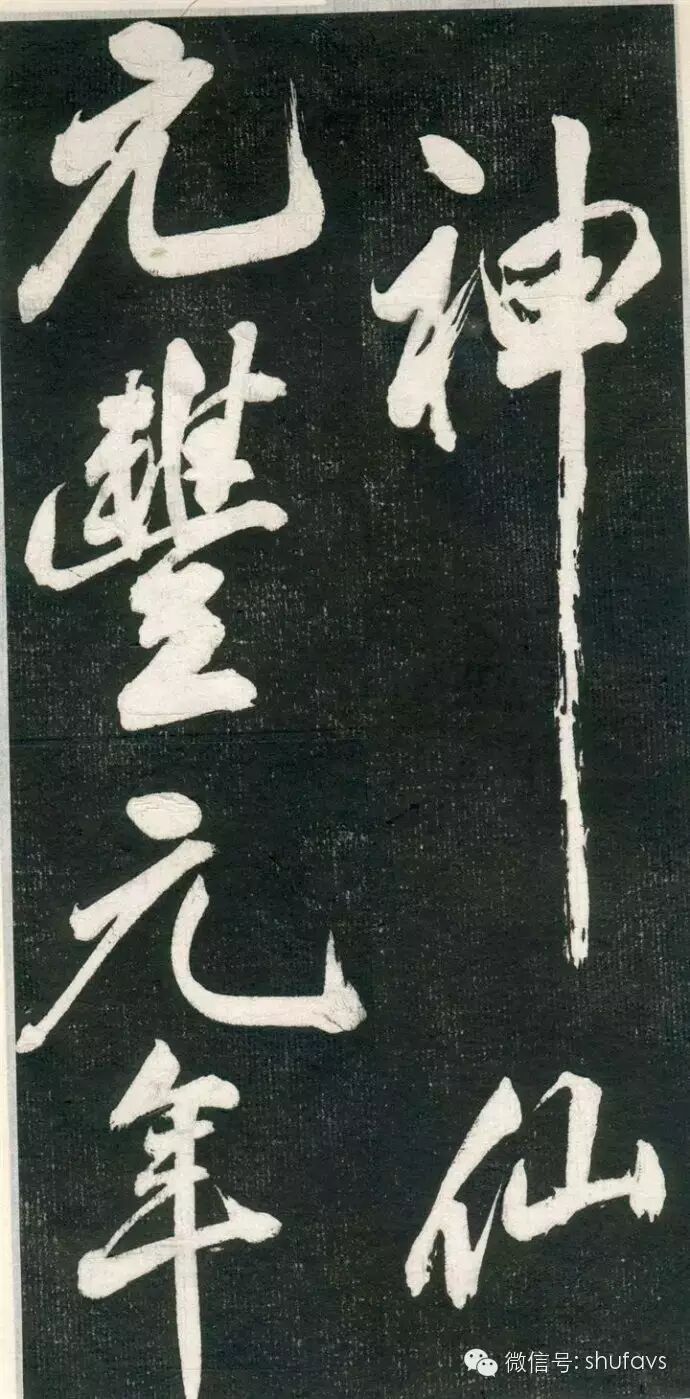 神仙
元豐元年
微信号: shufavs